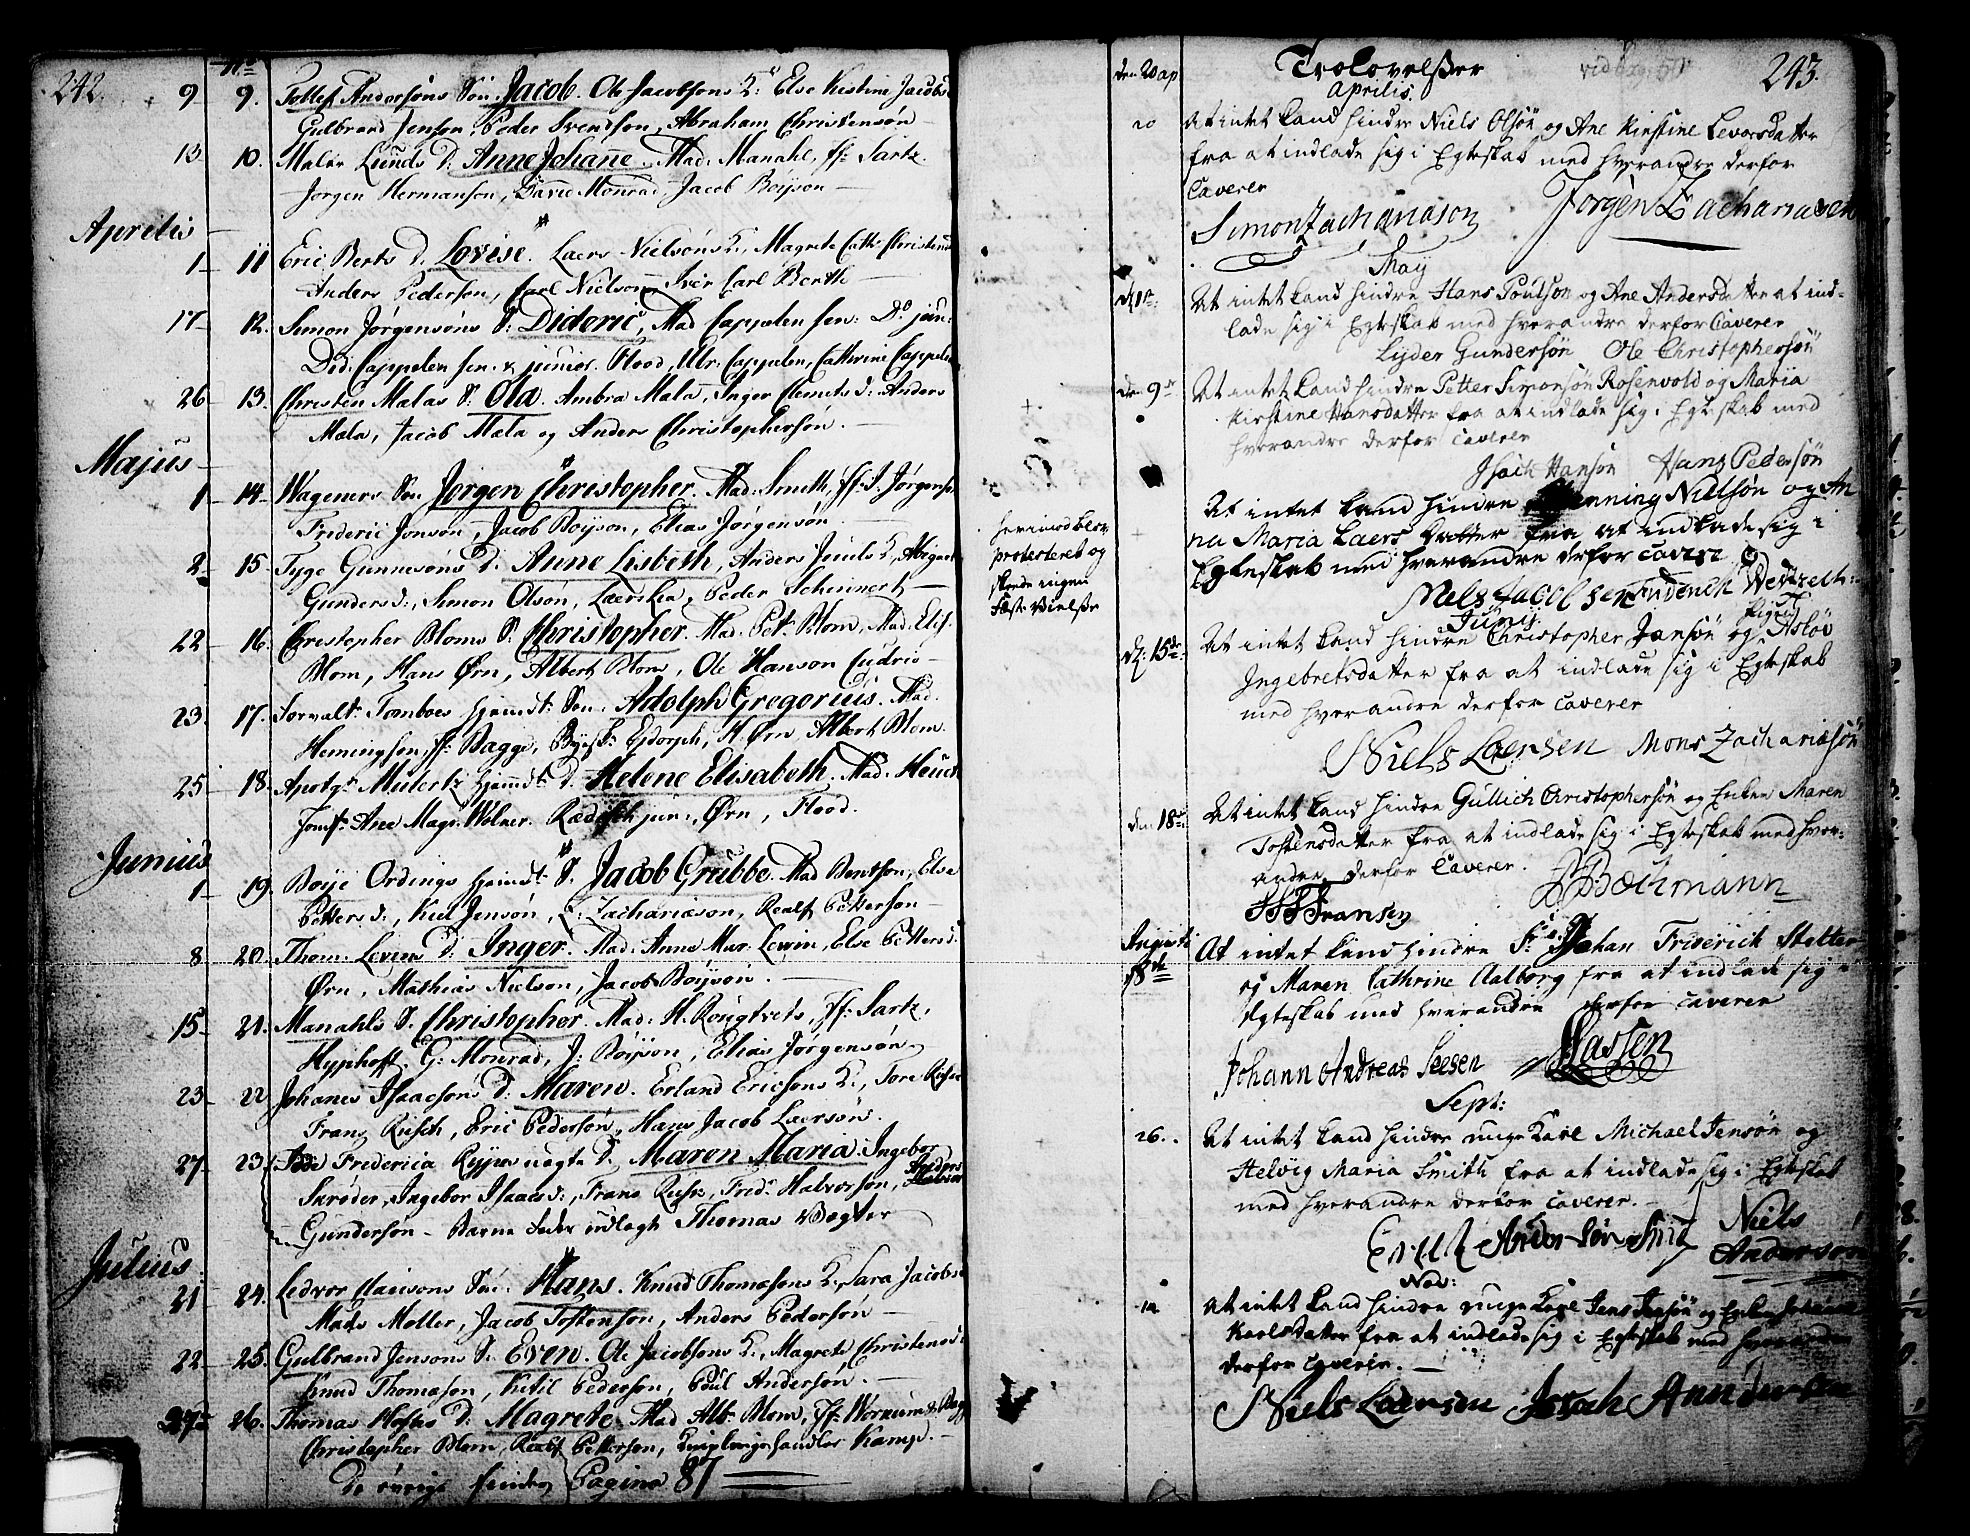 242.
No
9 9. Tollef Andersøns Søn Jacob. Ole Jacobsons K: Else Kistine Jacobs
Gulbrand Jenson, Peder Svendson, Abraham Christensøn
13 10. Maler Lunds D: Anne Johanne. Mad: Manahl, Jf: Sartz.
Jørgen Hermanson, David Monrad, Jacob Boÿson
Aprilis
1 11 Eric Berts D. Lovise. Laers Nielsøns K., Magrete Cath: Christens
Anders Pederson, Carl Nielson, Iver Carl Berth
17 12. Simon Jørgensøns S: Dideric, Mad Cappelen sen: Do jun:
Did: Cappelen sen. & junior. Flood, Ulr: Cappelen, Cathrine Cappelen
26 13. Christen Malas S: Ola. Ambra Mala, Inger Clemets d: Anders
Mæla, Jacob Mæla og Anders Christophersøn.
Majus
1 14 Wageners Søn Jørgen Christopher. Mad: Smith, Jf: S. Jørgens
Frederic Jonsøn, Jacob Boÿson, Elias Jørgensøn
2 15. Tyge Gunnesøns D: Anne Lisbeth, Anders Juuls K.,
Gunders d:, Simon Olsøn, Peder Schinnert
22 16. Christopher Bloms S. Christopher. Mad: Pet: Blom, Mad: Elis.
Blom, Hans Ørn, Albert Blom, Ole Hanson
23. 17. Forvalt: Tomboes hjemdt: Søn. Adolph Gregorius. Mad.
Hemingson, Jf: Bagge, H. Ørn, Albert Blom.
25 18. Apotgr: Mulertz hjemdt: D: Helene Elisabeth. Mad: Heuch
Jomf: Ane Magr. Wolner. jun:, Ørn, Flood.
Junius
1 19. Boÿe Ordings hjemdt: S. Jacob Grubbe. Mad Bentson, Else
Petters d:, Kiel Jensøn, Zachariæson, Realf Petterson
8 20. Thom: Levins D: Inger. Mad: Anne Mar: Lewin, Else Petters d:
Ørn, Mathias Nielson, Jacob Boÿson.
15 21. Manahls S. Christopher. Mad: H. Rougtvets, Jf: Sartz,
Hyphoff, G: Monrad, J: Boÿson, Elias Jørgensøn
23 22 Johanes Isaacsøns D: Maren. Erland Ericsons K:, Tore
Frans Riisch, Eric Pedersøn, Hans Jacob Laersøn.
27 23. Fredericia uægte D: Maren Maria. Ingebor
Skrøder, Ingebor Isaacs d:, Frans, Fred: Halvorson, Anders
Gunderson Barne Fader udlagt Thomas Vægter
Julius
21 24. Ledvor Claesons Søn: Hans. Knud Thomæsons K:, Sara Jacobs
Mads Møller, Jacob Tostenson, Anders Pedersøn
22 25. Gulbrand Jensons S. Even. Ole Jacobsons K., Magrete Christens d:
Knud Thomæson, Ketil Pederson, Poul Andersøn.
27 26. Thomas D: Magrete. Mad Alb: Blom, Jf: Wornum &
Christopher Blom, Realf Petterson, Kamp.
De øvrige findes Pagina 87
243.
den 20 ap Trolovelßer
Aprilis.
20 At intet kand hindre Niels Olsøn og Ane Kirstine Levorsdatter
fra at indlade sig i Egteskab med hverandre derfor
Caverer
Simon Zachariason Jørgen Zachariasen
Maij
At intet kand hindre Hans Poulson og Ane Andersdatter at ind-
lade sig i Egteskab med hverandre derfor Caverer
Lyder Gundersøn Ole Christophersøn
den 9de At intet kand hindre Petter Simonsøn Rosenvold og Maria
Kirstine Hansdatter fra at indlade sig i Egteskab med
hverandre derfor Caverer
Isach Hansøn Hans Pedersøn
herimod blev
protesteret og
skeede ingen
At intet kand hindre Henning Nielsøn og An
na Maria Laers Datter fra at indlade sig i
Egteskab med hverandre derfor cavere
Niels Jacobsen Friderich
Junij
d: 15de At intet kand hindre Christopher Jansøn og Asloe
Ingebretsdatter fra at indlade sig i Egteskab
med hverandre derfor caverer
Niels Laersen Mons Zachariasøn
den 18de At intet kand hindre Gullich Christophersøn og Enken Maren
Tostensdatter fra at indlade sig i Egteskab med hver-
andre derfor Caverer.
Fransen Bochmann
Augusti
18de At intet kand hindre Sr. Johan Friderich Stetter
og Maren Cathrine Aalborg fra at indlade sig i
Egteskab med hverandre derfor caverer
Johann Andreas Seesen Hassen
Sept:
26. At intet kand hindre unge Karl Michael Jensøn og
Helvig Maria Smith fra at indlade sig i Egteskab
med hverandre derfor caverer.
Andersøn Smid Niels
Anderson
Nov:
At intet kand hindre unge Karl Jens Jensøn og Enken Johanne
Karlsdatter fra at indlade sig i Egteskab med hverandre
derfor caverer.
Niels Laersen Isach Anndersen